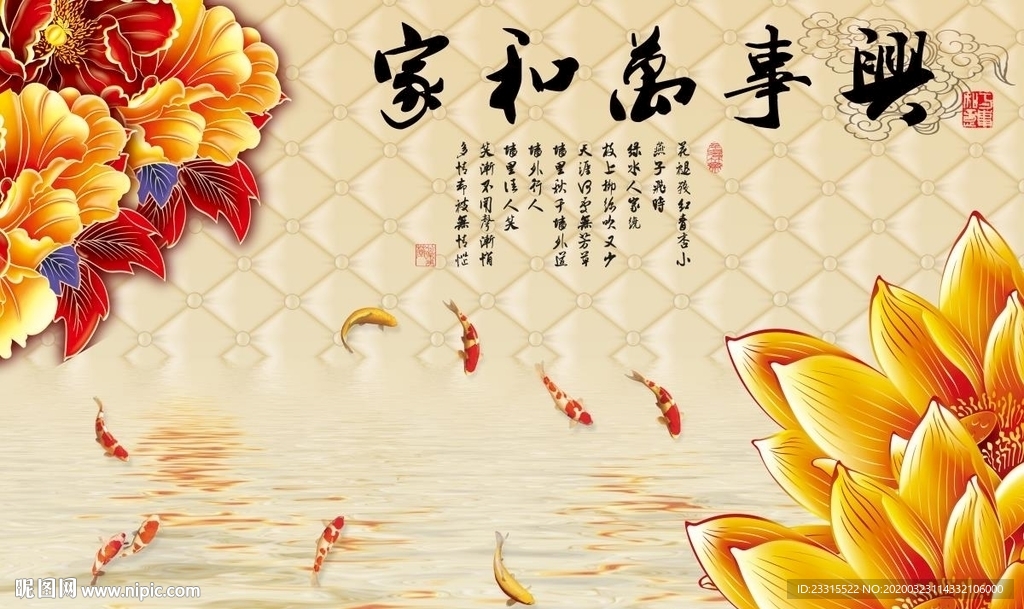 家和萬事興
花褪殘紅青杏小
燕子飛時
綠水人家繞
枝上柳綿吹又少
天涯何處無芳草
墻里秋千墻外道
墻外行人
墻里佳人笑
笑漸不聞聲漸悄
多情卻被無情惱
昵图网 www.nipic.com
ID:23315522 NO:20200323114332106000